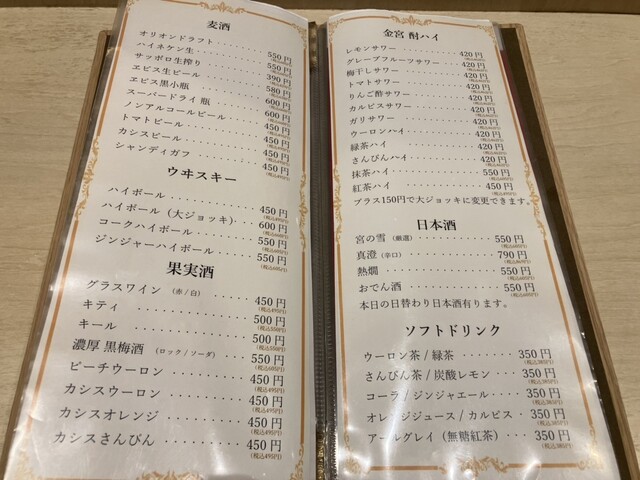 麦酒
オリオンドラフト・・・・・・・550円
ハイネケン生・・・・・・・・550円
サッポロ生搾り・・・・・・・390円
ヱビス生ビール・・・・・・・580円
ヱビス黒小瓶・・・・・・・・600円
スーパードライ 瓶・・・・・・600円
ノンアルコールビール・・・・・450円
トマトビール・・・・・・・・450円
カシスビール・・・・・・・・450円
シャンディガフ・・・・・・・450円
ウヰスキー
ハイボール・・・・・・・・・450円
ハイボール（大ジョッキ）・・・600円
コークハイボール・・・・・・550円
ジンジャーハイボール・・・・・550円
果実酒
グラスワイン （赤/白）・・・・450円 (税込495円)
キティ・・・・・・・・・・500円 (税込550円)
キール・・・・・・・・・・500円 (税込550円)
濃厚 黒梅酒 （ロック/ソーダ）・・・550円 (税込605円)
ピーチウーロン・・・・・・・450円 (税込495円)
カシスウーロン・・・・・・・450円 (税込495円)
カシスオレンジ・・・・・・・450円 (税込495円)
カシスさんぴん・・・・・・・450円 (税込495円)
金宮 酎ハイ
レモンサワー・・・・・・・・420円
グレープフルーツサワー・・・・420円
梅干しサワー・・・・・・・・420円
トマトサワー・・・・・・・・420円
りんご酢サワー・・・・・・・420円
カルピスサワー・・・・・・・420円
ガリサワー・・・・・・・・・420円
ウーロンハイ・・・・・・・・420円
緑茶ハイ・・・・・・・・・・420円
さんぴんハイ・・・・・・・・420円
抹茶ハイ・・・・・・・・・・450円
紅茶ハイ・・・・・・・・・・450円
プラス150円で大ジョッキに変更できます。
日本酒
宮の雪 （厳選）・・・・・・・550円 (税込605円)
真澄 （辛口）・・・・・・・・790円
熱燗・・・・・・・・・・・550円 (税込605円)
おでん酒・・・・・・・・・550円 (税込605円)
本日の日替わり日本酒有ります。
ソフトドリンク
ウーロン茶 / 緑茶・・・・・・350円 (税込385円)
さんぴん茶 / 炭酸レモン・・・350円 (税込385円)
コーラ / ジンジャエール・・・・350円 (税込385円)
オレンジジュース / カルピス・・・350円 (税込385円)
アールグレイ（無糖紅茶）・・・350円 (税込385円)